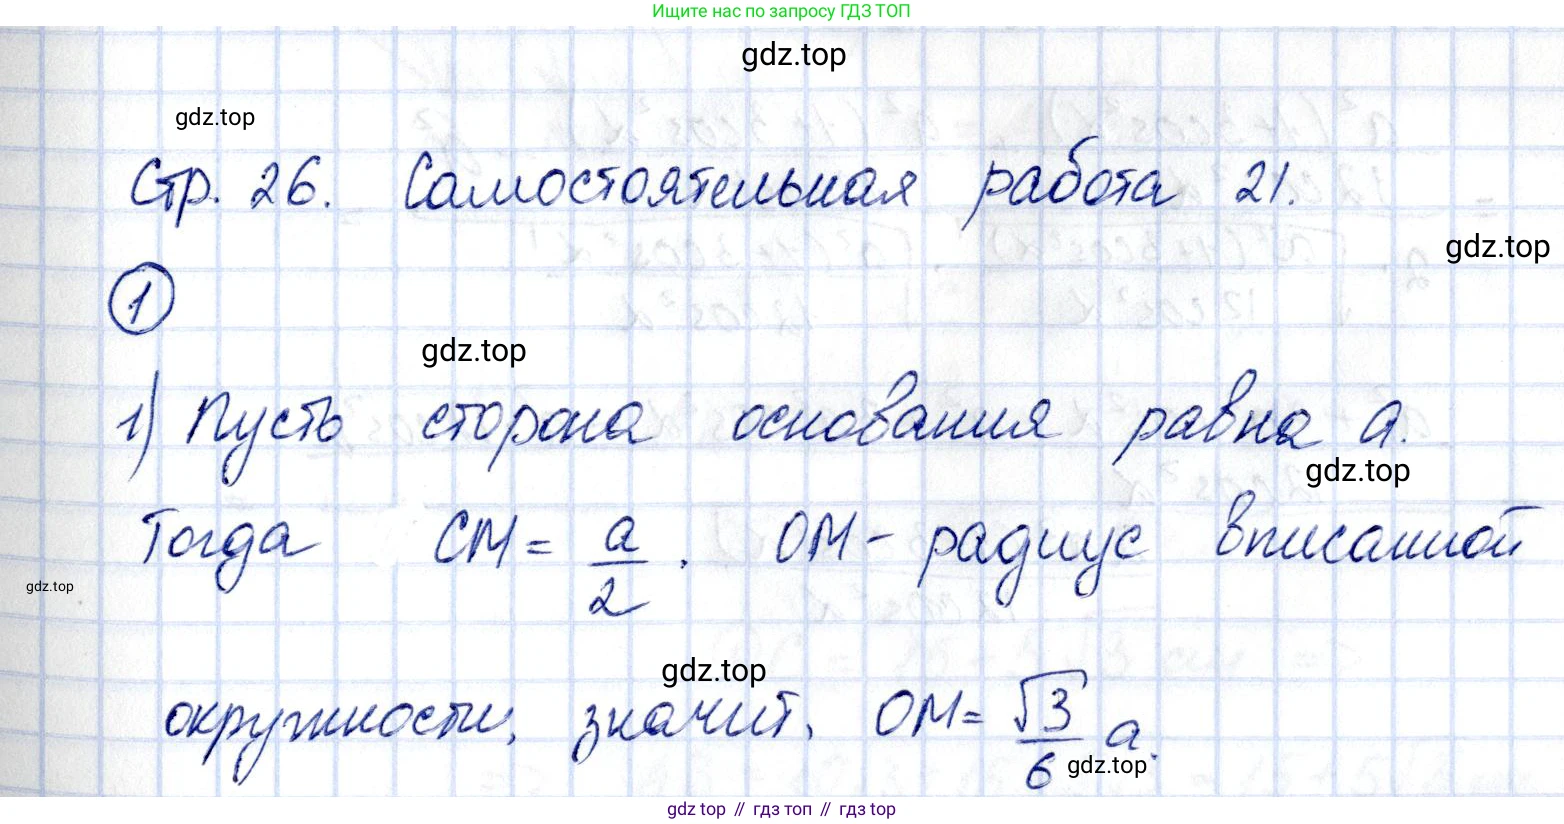 Ищите нас по запросу ГДЗ ТОП
gdz.top
gdz.top
Стр. 26. Самостоятельная работа 21.
gdz.top
1
gdz.top
1) Пусть сторона основания равна a.
gdz.top
Тогда CM = a/2. OM - радиус вписанной
gdz.top
gdz.top
окружности, значит, OM = √3/6 a.
gdz.top
gdz.top // гдз топ // gdz top